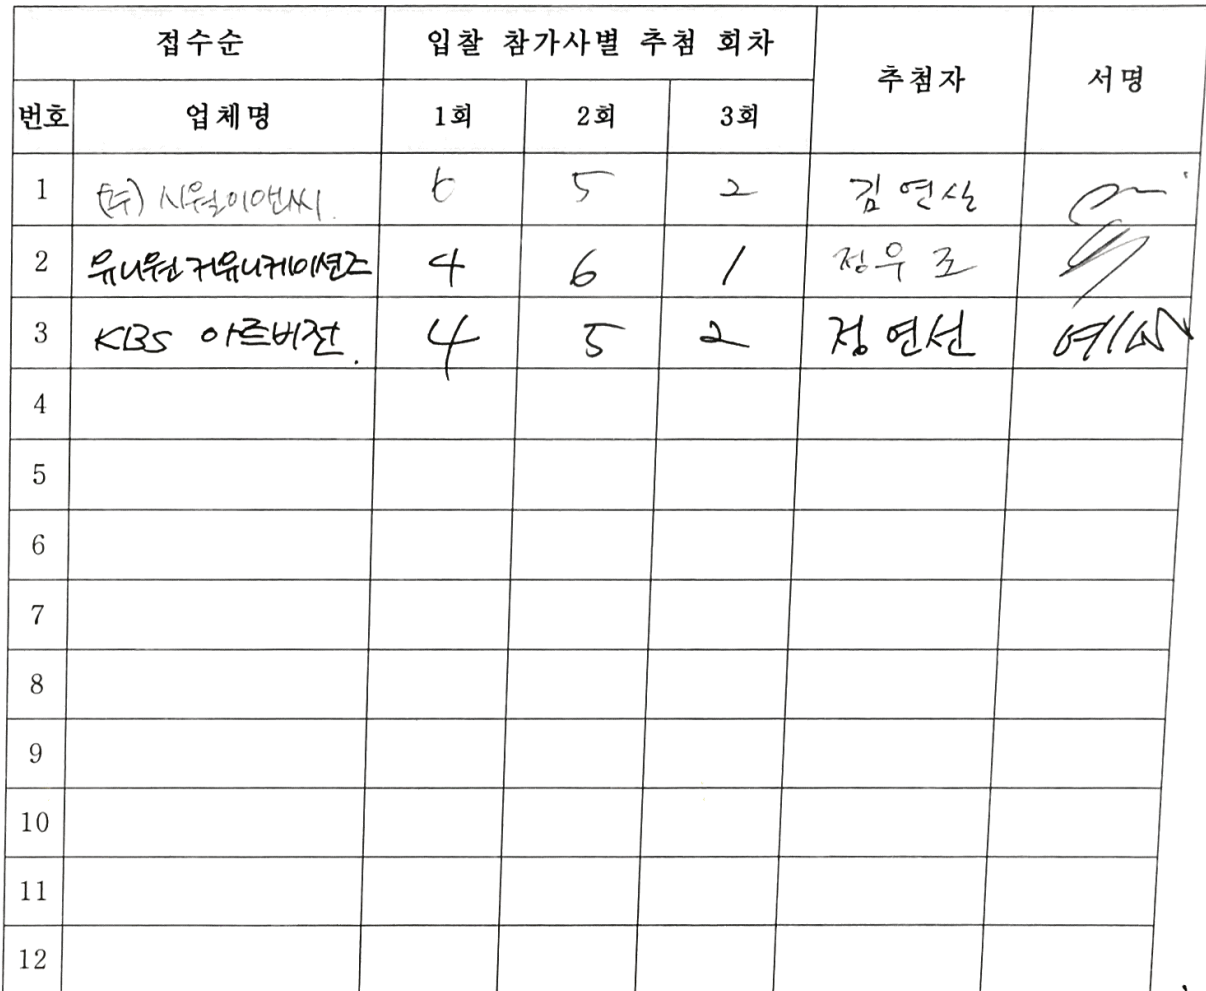 접수순 입찰 참가사별 추첨 회차 추첨자 서명
번호 업체명 1회 2회 3회
1 (주) 시월이앤씨. 6 5 2 김연실
2 유니원커뮤니케이션즈 4 6 1 정우조
3 KBS 아트비전. 4 5 2 정연선
4
5
6
7
8
9
10
11
12